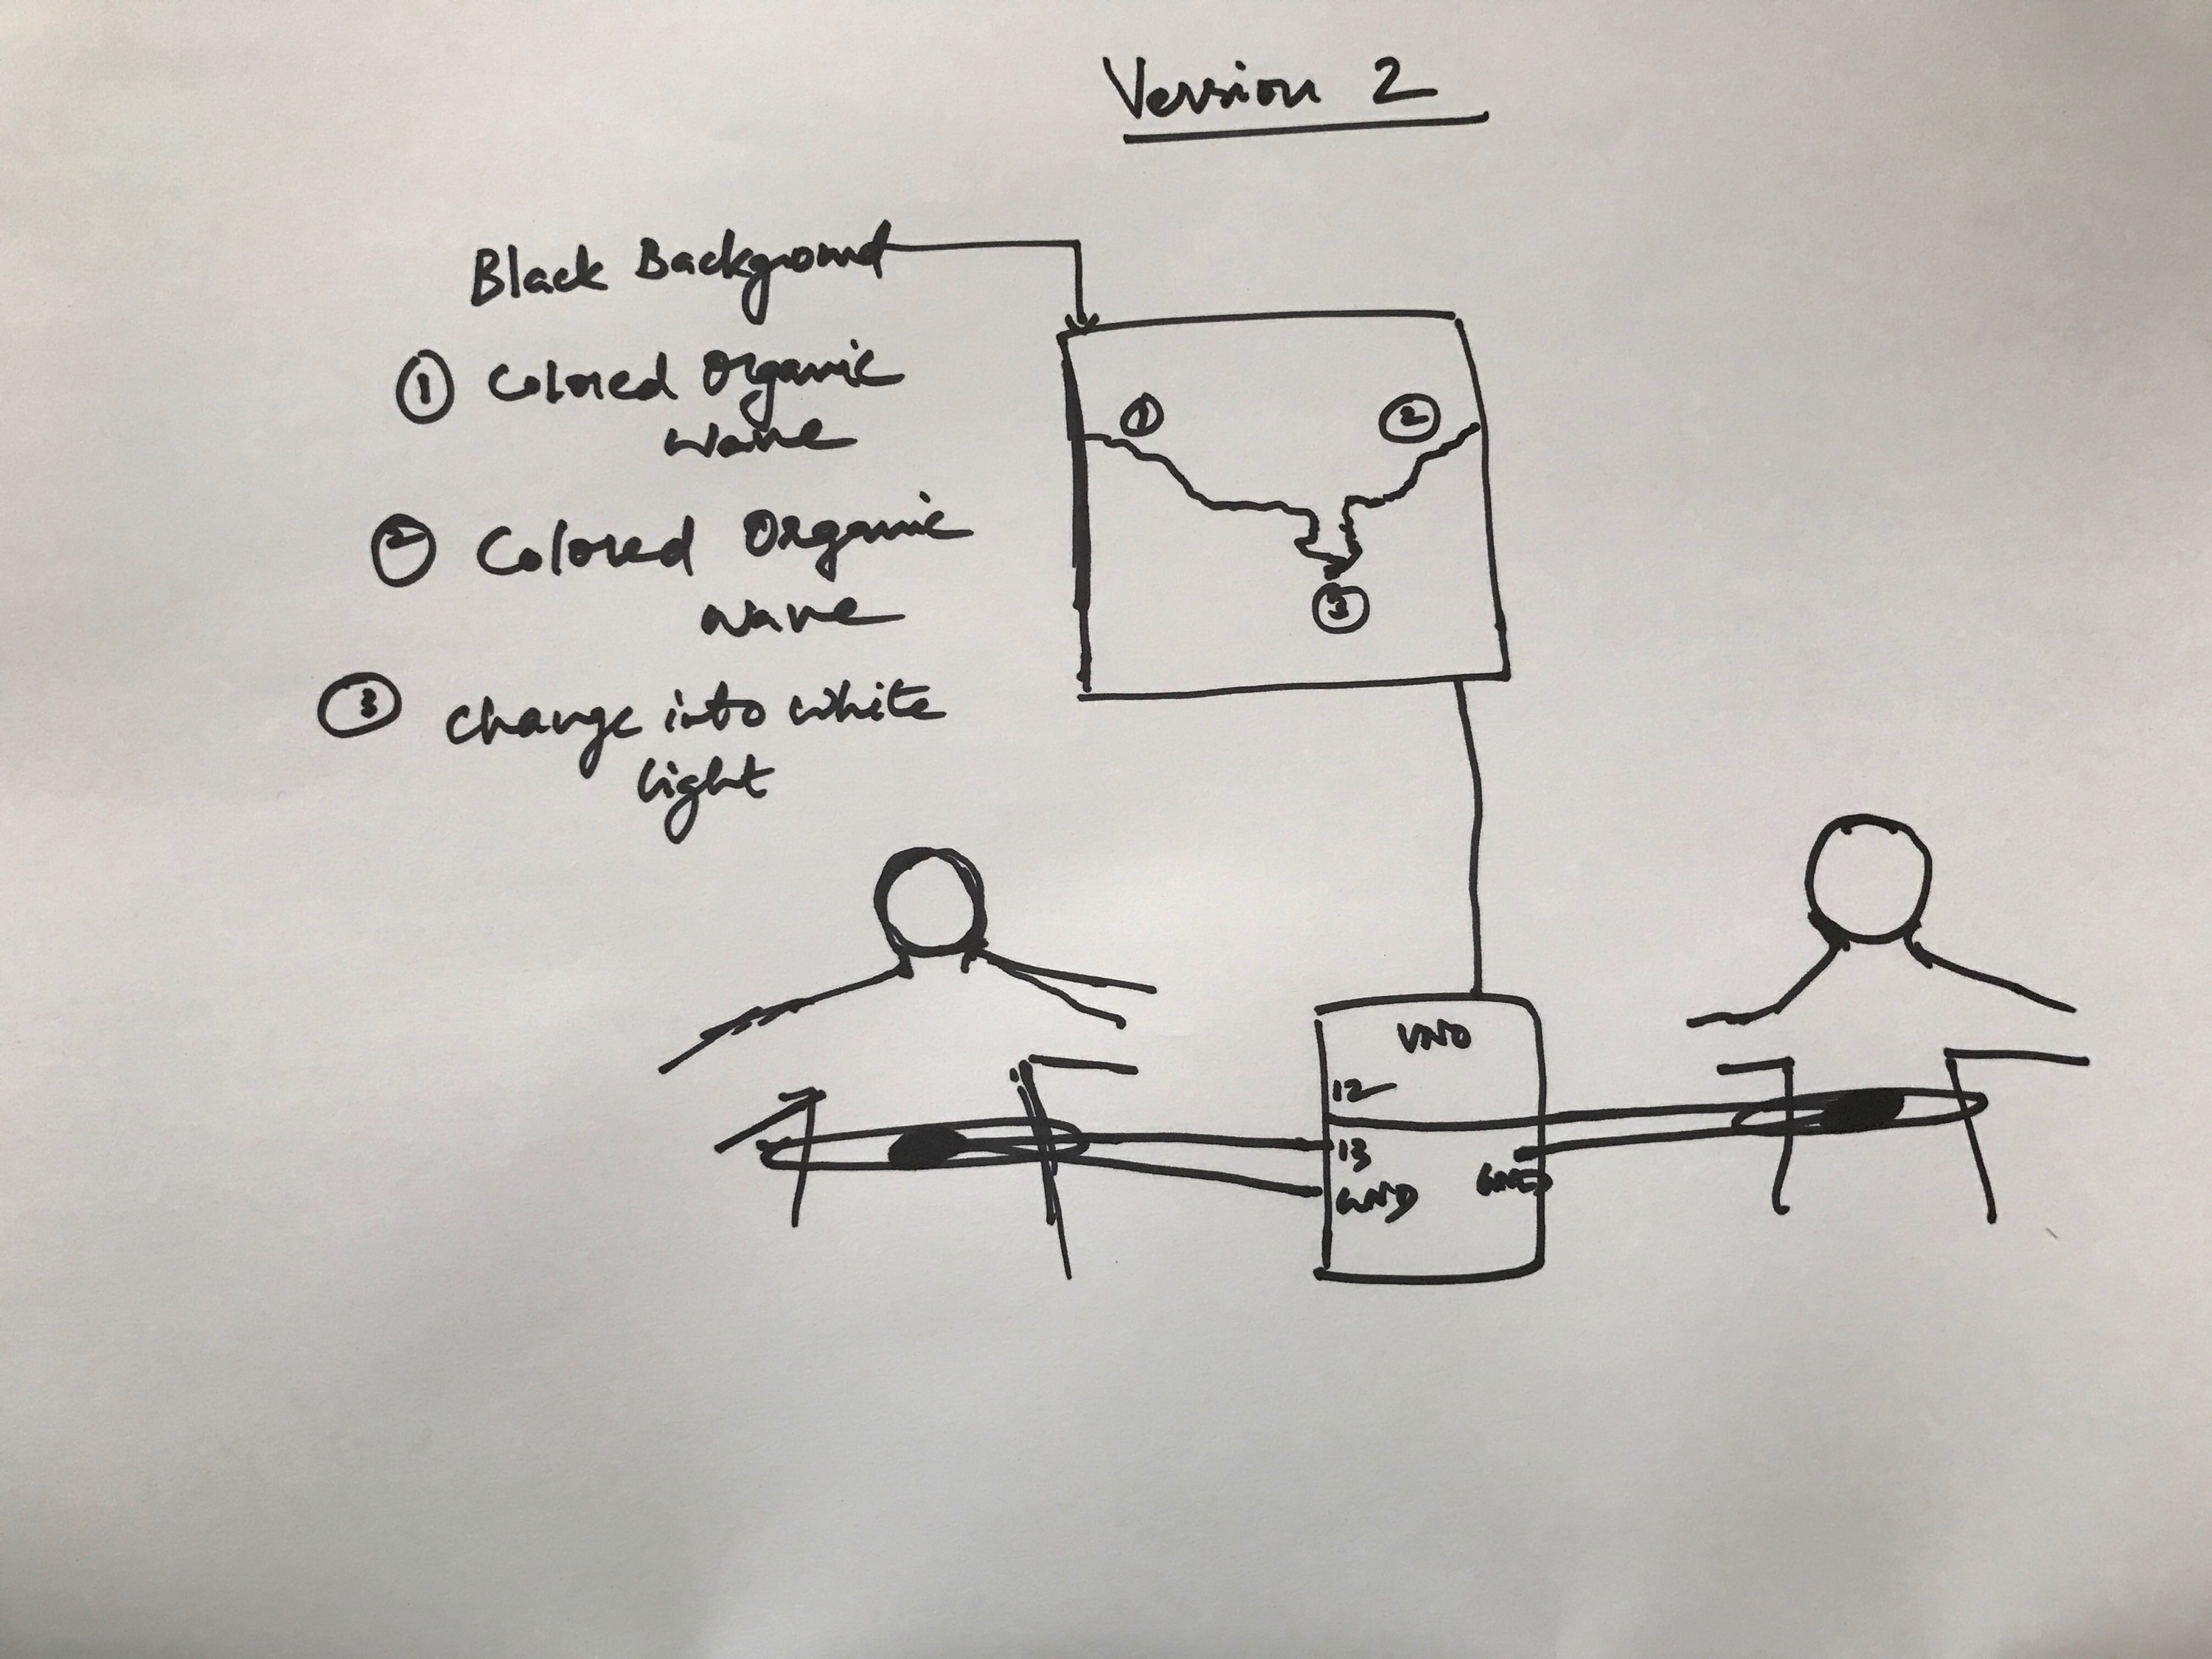 Version 2
Black Background
① Colored Organic
wave
② Colored Organic
wave
③ Change into white
light
①
②
③
UNO
12
13
GND
GND